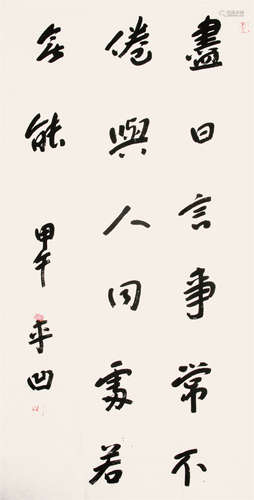 盡日言事常不
倦與人同處若
無能 甲午 平凹